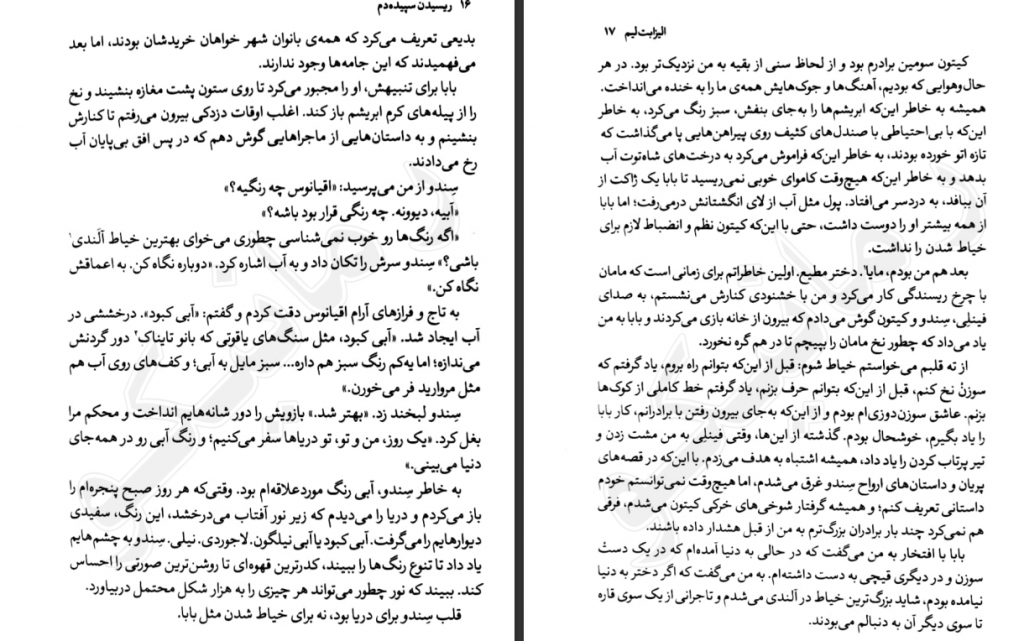 ۱۶ رسیدن سپیده‌دم
بدیعی تعریف می‌کرد که همه‌ی بانوان شهر خواهان خریدشان بودند، اما بعد
می‌فهمیدند که این جامه‌ها وجود ندارند.
بابا برای تنبیهش، او را مجبور می‌کرد تا روی ستون پشت مغازه بنشیند و نخ
را از پیله‌های کرم ابریشم باز کند. اغلب اوقات دزدکی بیرون می‌رفتم تا کنارش
بنشینم و به داستان‌هایی از ماجراهایی گوش دهم که در پس افق بی‌پایان آب
رخ می‌دادند.
سِندو از من می‌پرسید: «اقیانوس چه رنگیه؟»
«آبیه، دیوونه. چه رنگی قرار بود باشه؟»
«اگه رنگ‌ها رو خوب نمی‌شناسی چطوری می‌خوای بهترین خیاط آلَندی۱
باشی؟» سِندو سرش را تکان داد و به آب اشاره کرد. «دوباره نگاه کن. به اعماقش
نگاه کن.»
به تاج و فرازهای آرام اقیانوس دقت کردم و گفتم: «آبی کبود». درخششی در
آب ایجاد شد. «آبی کبود، مثل سنگ‌های یاقوتی که بانو تایناک۲ دور گردنش
می‌ندازه؛ اما یه‌کم رنگ سبز هم داره... سبز مایل به آبی؛ و کف‌های روی آب هم
مثل مروارید فر می‌خورن.»
سِندو لبخند زد. «بهتر شد.» بازویش را دور شانه‌هایم انداخت و محکم مرا
بغل کرد. «یک روز، من و تو، تو دریاها سفر می‌کنیم؛ و رنگ آبی رو در همه‌جای
دنیا می‌بینی.»
به خاطر سِندو، آبی رنگ موردعلاقه‌ام بود. وقتی‌که هر روز صبح پنجره‌ام را
باز می‌کردم و دریا را می‌دیدم که زیر نور آفتاب می‌درخشد، این رنگ، سفیدی
دیوارهایم را می‌گرفت. آبی کبود یا آبی نیلگون. لاجوردی. نیلی. سِندو به چشم‌هایم
یاد داد تا تنوع رنگ‌ها را ببیند، کدرترین قهوه‌ای تا روشن‌ترین صورتی را احساس
کند. ببیند که نور چطور می‌تواند هر چیزی را به هزار شکل محتمل دربیاورد.
قلب سِندو برای دریا بود، نه برای خیاط شدن مثل بابا.
الیزابت لیم ۱۷
کیتون سومین برادرم بود و از لحاظ سنی از بقیه به من نزدیک‌تر بود. در هر
حال‌وهوایی که بودیم، آهنگ‌ها و جوک‌هایش همه‌ی ما را به خنده می‌انداخت.
همیشه به خاطر این‌که ابریشم‌ها را به‌جای بنفش، سبز رنگ می‌کرد، به خاطر
این‌که با بی‌احتیاطی با صندل‌های کثیف روی پیراهن‌هایی پا می‌گذاشت که
تازه اتو خورده بودند، به خاطر این‌که فراموش می‌کرد به درخت‌های شاه‌توت آب
بدهد و به خاطر این‌که هیچ‌وقت کاموای خوبی نمی‌ریسید تا بابا یک ژاکت از
آن ببافد، به دردسر می‌افتاد. پول مثل آب از لای انگشتانش درمی‌رفت؛ اما بابا
از همه بیشتر او را دوست داشت، حتی با این‌که کیتون نظم و انضباط لازم برای
خیاط شدن را نداشت.
بعد هم من بودم، مایا۱. دختر مطیع. اولین خاطراتم برای زمانی است که مامان
با چرخ ریسندگی کار می‌کرد و من با خشنودی کنارش می‌نشستم، به صدای
فینلِی، سِندو و کیتون گوش می‌دادم که بیرون از خانه بازی می‌کردند و بابا به من
یاد می‌داد که چطور نخ مامان را بپیچم تا در هم گره نخورد.
از ته قلبم می‌خواستم خیاط شوم: قبل از این‌که بتوانم راه بروم، یاد گرفتم که
سوزن نخ کنم، قبل از این‌که بتوانم حرف بزنم، یاد گرفتم خط کاملی از کوک‌ها
بزنم. عاشق سوزن‌دوزی‌ام بودم و از این‌که به‌جای بیرون رفتن با برادرانم، کار بابا
را یاد بگیرم، خوشحال بودم. گذشته از این‌ها، وقتی فینلِی به من مشت زدن و
تیر پرتاب کردن را یاد داد، همیشه اشتباه به هدف می‌زدم. با این‌که در قصه‌های
پریان و داستان‌های ارواح سِندو غرق می‌شدم، اما هیچ‌وقت نمی‌توانستم خودم
داستانی تعریف کنم؛ و همیشه گرفتار شوخی‌های خرکی کیتون می‌شدم، فرقی
هم نمی‌کرد چند بار برادران بزرگ‌ترم به من از قبل هشدار داده باشند.
بابا با افتخار به من می‌گفت که در حالی به دنیا آمده‌ام که در یک دست
سوزن و در دیگری قیچی به دست داشته‌ام. به من می‌گفت که اگر دختر به دنیا
نیامده بودم، شاید بزرگ‌ترین خیاط در آلَندی می‌شدم و تاجرانی از یک سوی قاره
تا سوی دیگر آن به دنبالم می‌بودند.